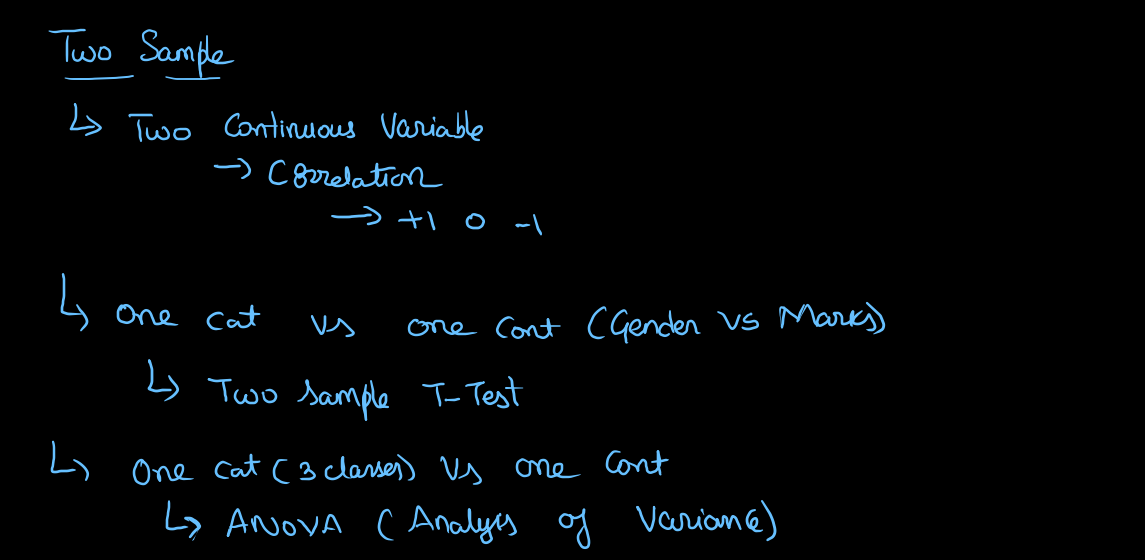 Two Sample
↳ Two Continuous Variable
→ Correlation
→ +1 0 -1
↳ One cat vs one Cont (Gender vs Marks)
↳ Two Sample T-Test
↳ One cat (3 classes) Vs one Cont
↳ ANOVA (Analysis of Variance)